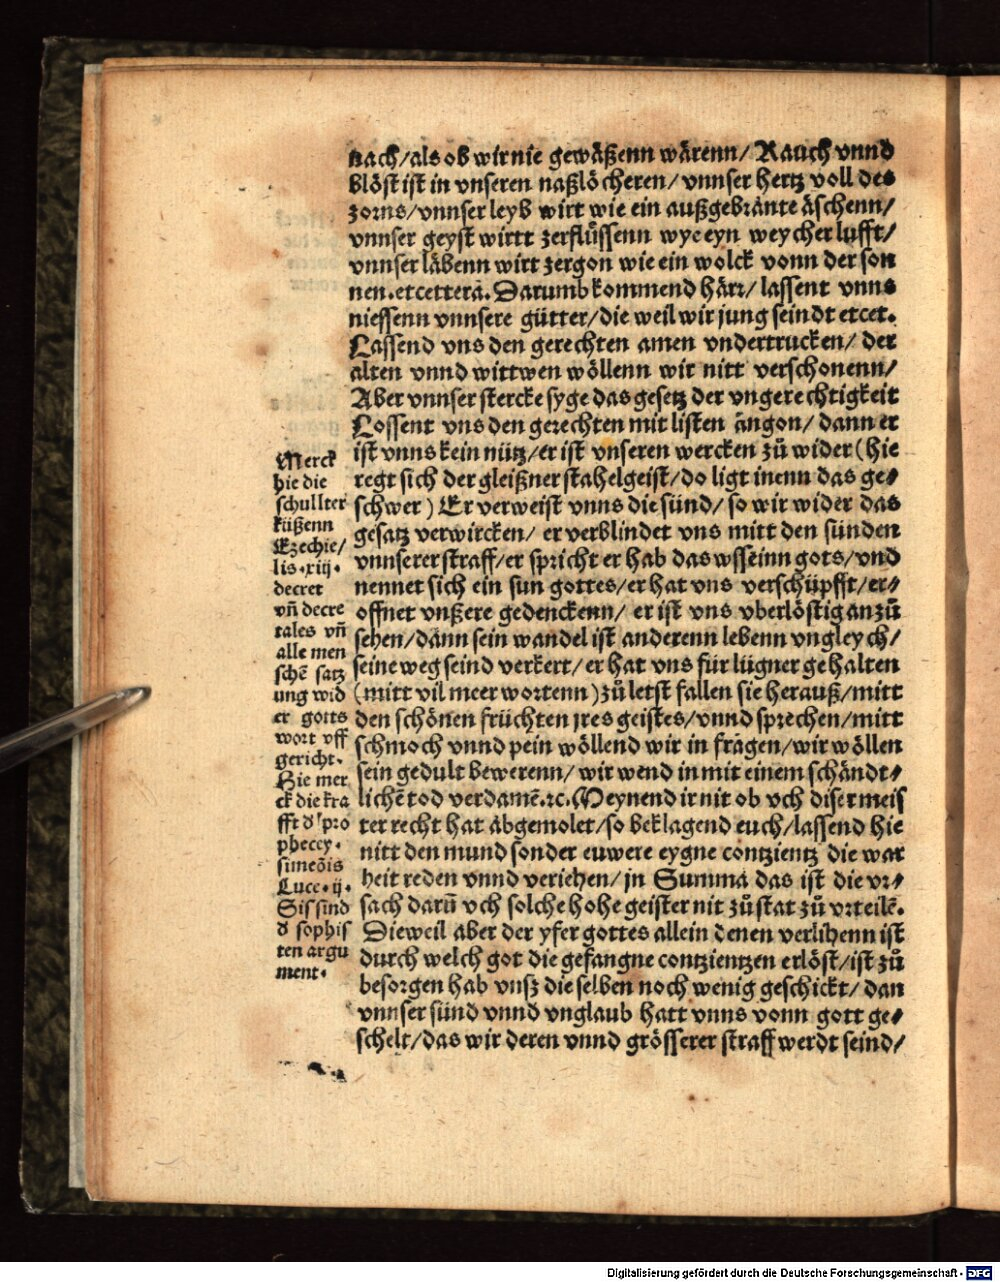 nach/als ob wir nie gewäßenn wärenn/ Rauch vnnd
blöst ist in vnseren naßlöcheren/ vnnser hertz voll des
zorns/vnnser leyb wirt wie ein außgebrante äschenn/
vnnser geyst wirtt zerflüssenn wye eyn weycher lufft/
vnnser läbenn wirt zergon wie ein wolck vonn der son
nen.etcettera. Darumb kommend härr/ lassent vnns
niessenn vnnsere gütter/die weil wir jung seindt etcet.
Lassend vns den gerechten amen vndertrucken/ der
alten vnnd wittwen wöllenn wir nitt verschonenn/
Aber vnnser stercke syge das gesetz der vngerechtigkeit
Lossent vns den gerechten mit listen ängon/ dann er
ist vnns kein nütz/er ist vnseren wercken zů wider (hie
regt sich der gleißner stahelgeist/do ligt inenn das ge/
schwer) Er verweist vnns die sünd/ so wir wider das
gesatz verwircken/ er verblindet vns mitt den sünden
vnnserer straff/er spricht er hab das wsseinn gots/vnd
nennet sich ein sun gottes/er hat vns verschüpfft/er/
offnet vnßere gedenckenn/ er ist vns vberlöstig an zů
sehen/dann sein wandel ist anderenn lebenn vngleych/
seine weg seind verkert/er hat vns für lügner gehalten
(mitt vil meer wortenn)zů letst fallen sie herauß/mitt
den schönen früchten jres geistes/vnnd sprechen/mitt
schmoch vnnd pein wöllend wir in fragen/wir wöllen
sein gedult bewerenn/ wir wend in mit einem schändt/
lichē tod verdamē.ꝛc. Meynend ir nit ob vch diser meis
ter recht hat abgemolet/so beklagend euch/lassend hie
nitt den mund sonder euwere eygne contzientz die war
heit reden vnnd veriehen/jn Summa das ist die vr/
sach darū vch solche hohe geister nit zů stat zů vrteilē.
Dieweil aber der yfer gottes allein denen verlihenn ist
durch welch got die gefangne contzientzen erlöst/ist zů
besorgen hab vnß die selben noch wenig geschickt/ dan
vnnser sünd vnnd vnglaub hatt vnns vonn gott ge/
schelt/das wir deren vnnd grösserer straff werdt seind/
Merck
hie die
schullter
küßenn
Ezechie/
lis.xiij.
decret
vñ decre
tales vñ
alle men
schē satz
ung wid
er gotts
wort vff
gericht.
Hie mer
ck die kra
fft d' pro
pheccy.
simeōis
Luce.ij.
Sis sind
d sophis
ten argu
ment.
Digitalisierung gefördert durch die Deutsche Forschungsgemeinschaft - DFG